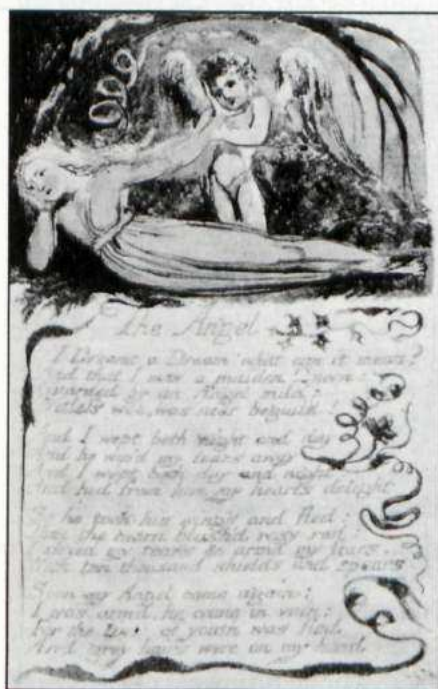 The Angel
I Dreamt a Dream! what can it mean?
And that I was a maiden Queen:
Guarded by an Angel mild;
Witless woe, was neer beguil'd!
And I wept both night and day
And he wip'd my tears away
And I wept both day and night
And hid from him my hearts delight
So he took his wings and fled:
Then the morn blush'd rosy red:
I dried my tears & armd my fears,
With ten thousand shields and spears
Soon my Angel came again:
I was arm'd, he came in vain:
For the time of youth was fled
And grey hairs were on my head